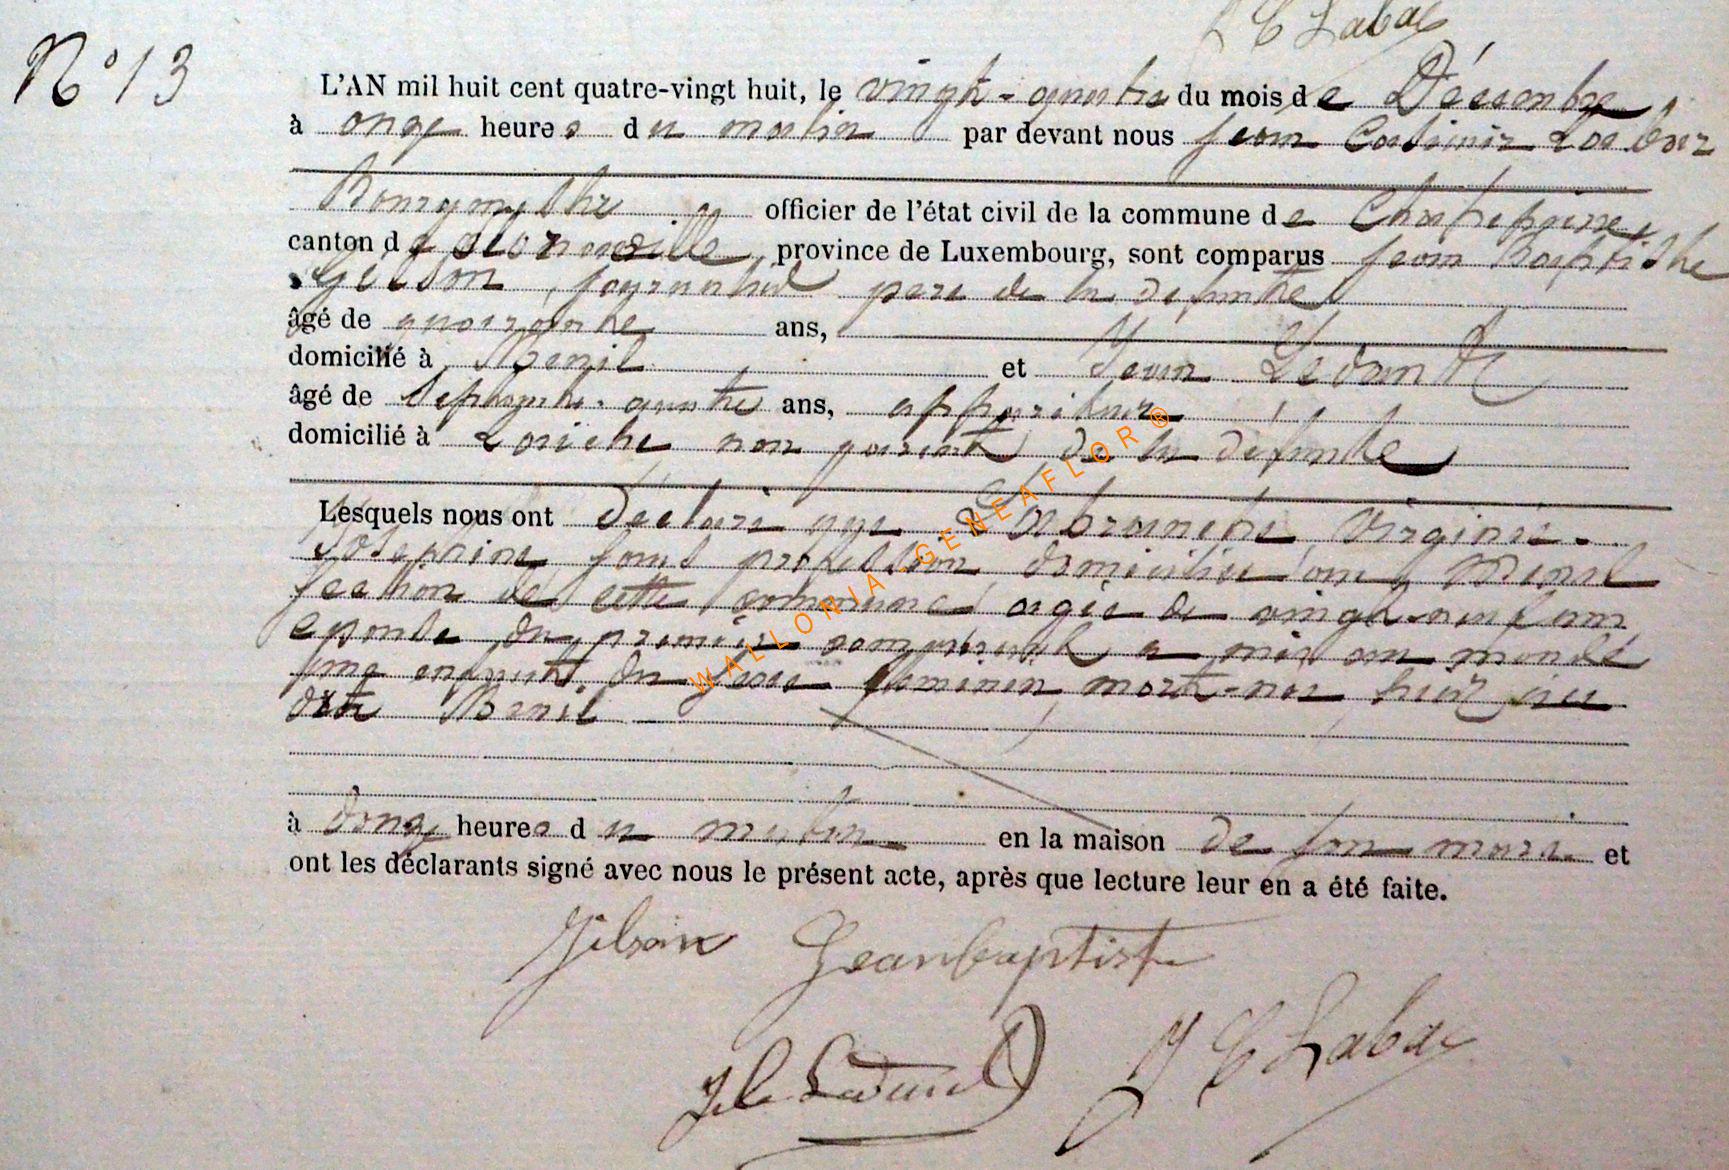 J C Labar
N° 13
L'AN mil huit cent quatre-vingt huit, le vingt-quatre du mois de Décembre
à onze heures du matin par devant nous Jean Casimir Labar
Bourgmestre officier de l'état civil de la commune de
canton de province de Luxembourg, sont comparus Jean Baptiste
Gilson, journalier père de la défunte
âgé de quarante ans,
domicilié à Menil et Jean
âgé de septante-quatre ans, appariteur
domicilié à non parent de la défunte
Lesquels nous ont déclaré que Virginie
Joséphine sans profession domiciliée au Menil
section de cette commune agée de vingt-neuf ans
épouse du premier comparant a mis au monde
une enfant du sexe féminin mort-née hier
dit Menil
à onze heures du matin en la maison de son mari et
ont les déclarants signé avec nous le présent acte, après que lecture leur en a été faite.
Gilson Jeanbaptiste
J C Labar
WALLONIA-GENEAFLOR®